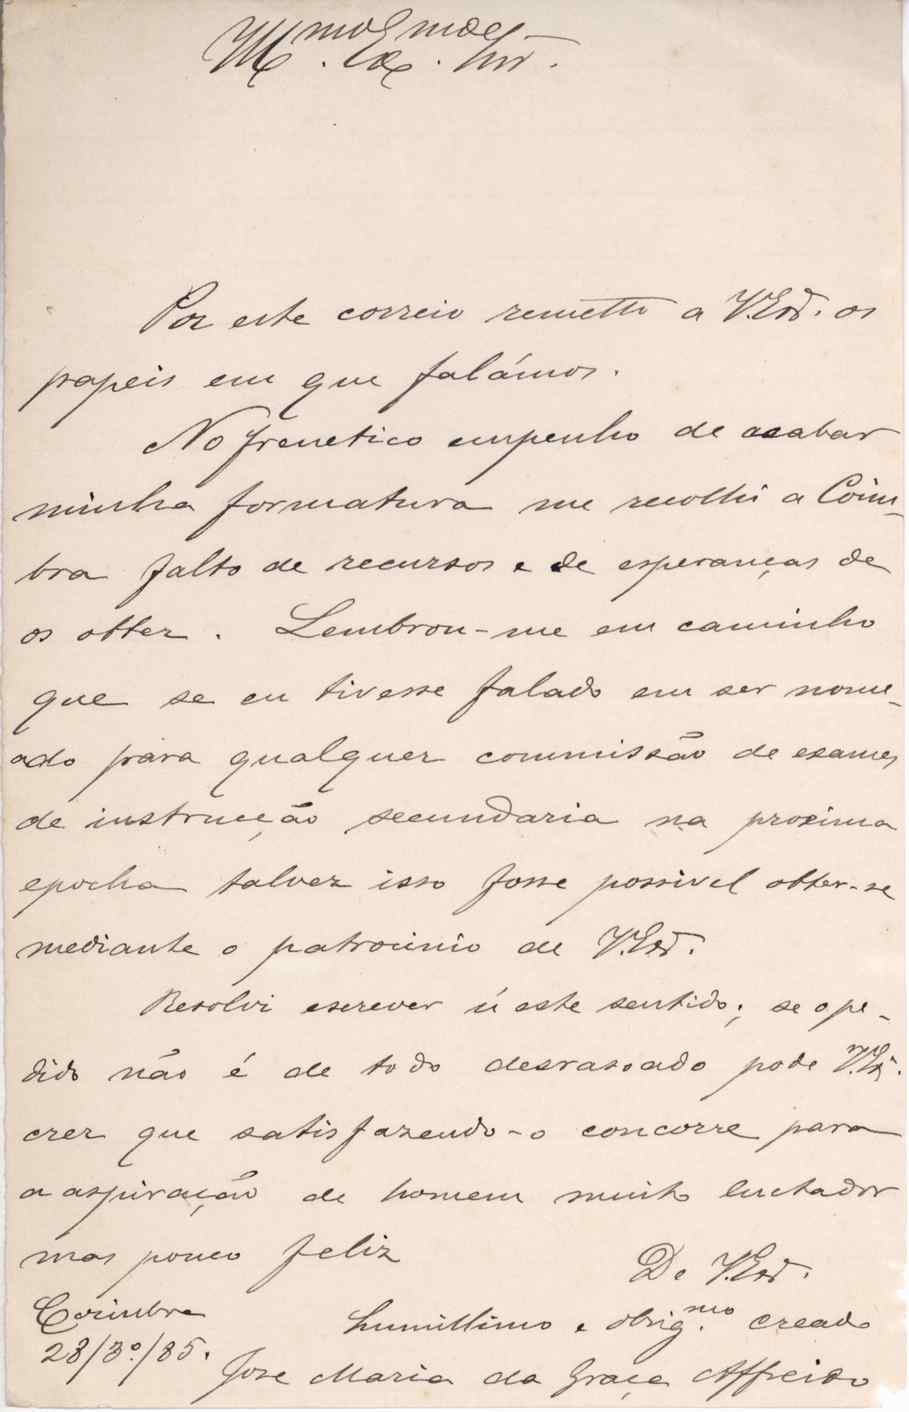 Ill.mo Ex.mo Snr.
Por este correio remetto a V.Ex.ª os
papeis em que falámos.
No frenetico empenho de acabar
minha formatura me recolhi a Coim-
bra falto de recursos e de esperanças de
os obter. Lembrou-me em caminho
que se eu tivesse falado em ser nome-
ado para qualquer commissão de exames
de instrucção secundaria na proxima
epocha talvez isso fosse possivel obter-se
mediante o patrocinio de V.Ex.ª.
Resolvi escrever n'este sentido; se o pe-
dido não é de todo desrasoado pode V.Ex.ª
crer que satisfazendo-o concorre para
a aspiração de homem muito luctador
mas pouco feliz
De V.Ex.ª.
Coimbra
humillimo e obrig.mo creado
28/3º/85.
Jose Maria da Graça Affreixo